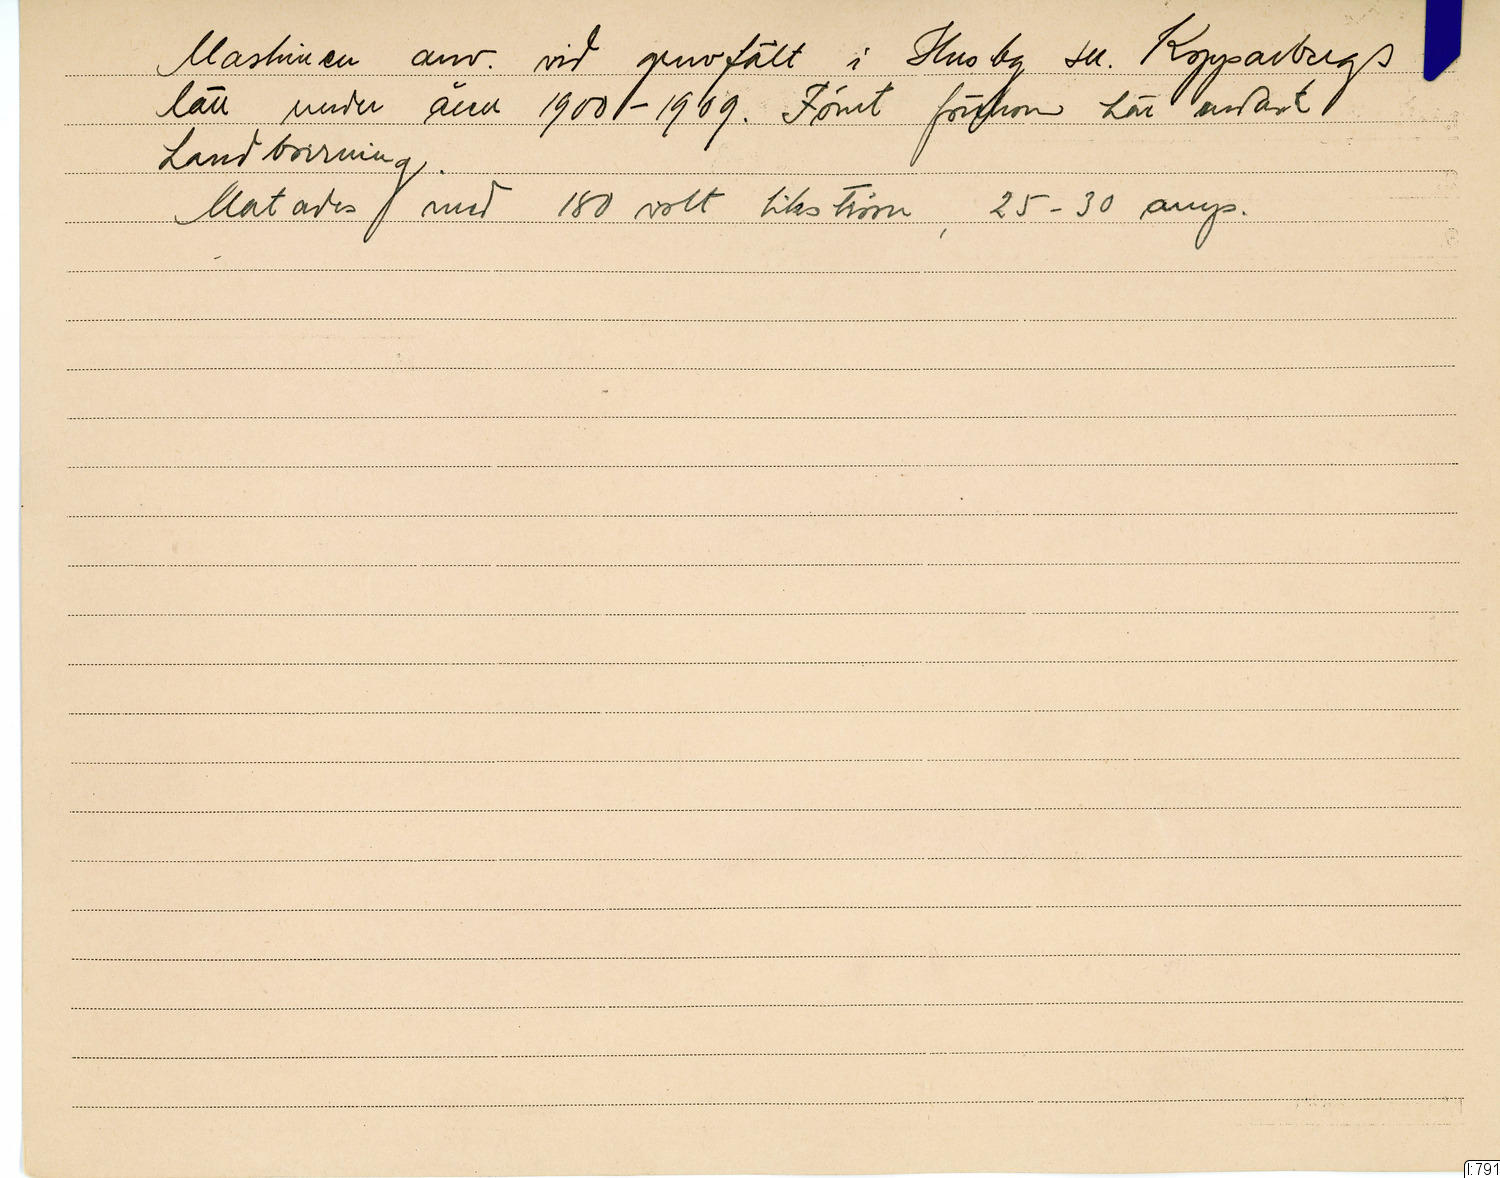 Maskinen anv. vid gruvfält i Husby sn. Kopparbergs
län under åren 1900-1909. Förut förekom här endast
handborrning.
Matades med 180 volt likström, 25-30 amp.
I:791